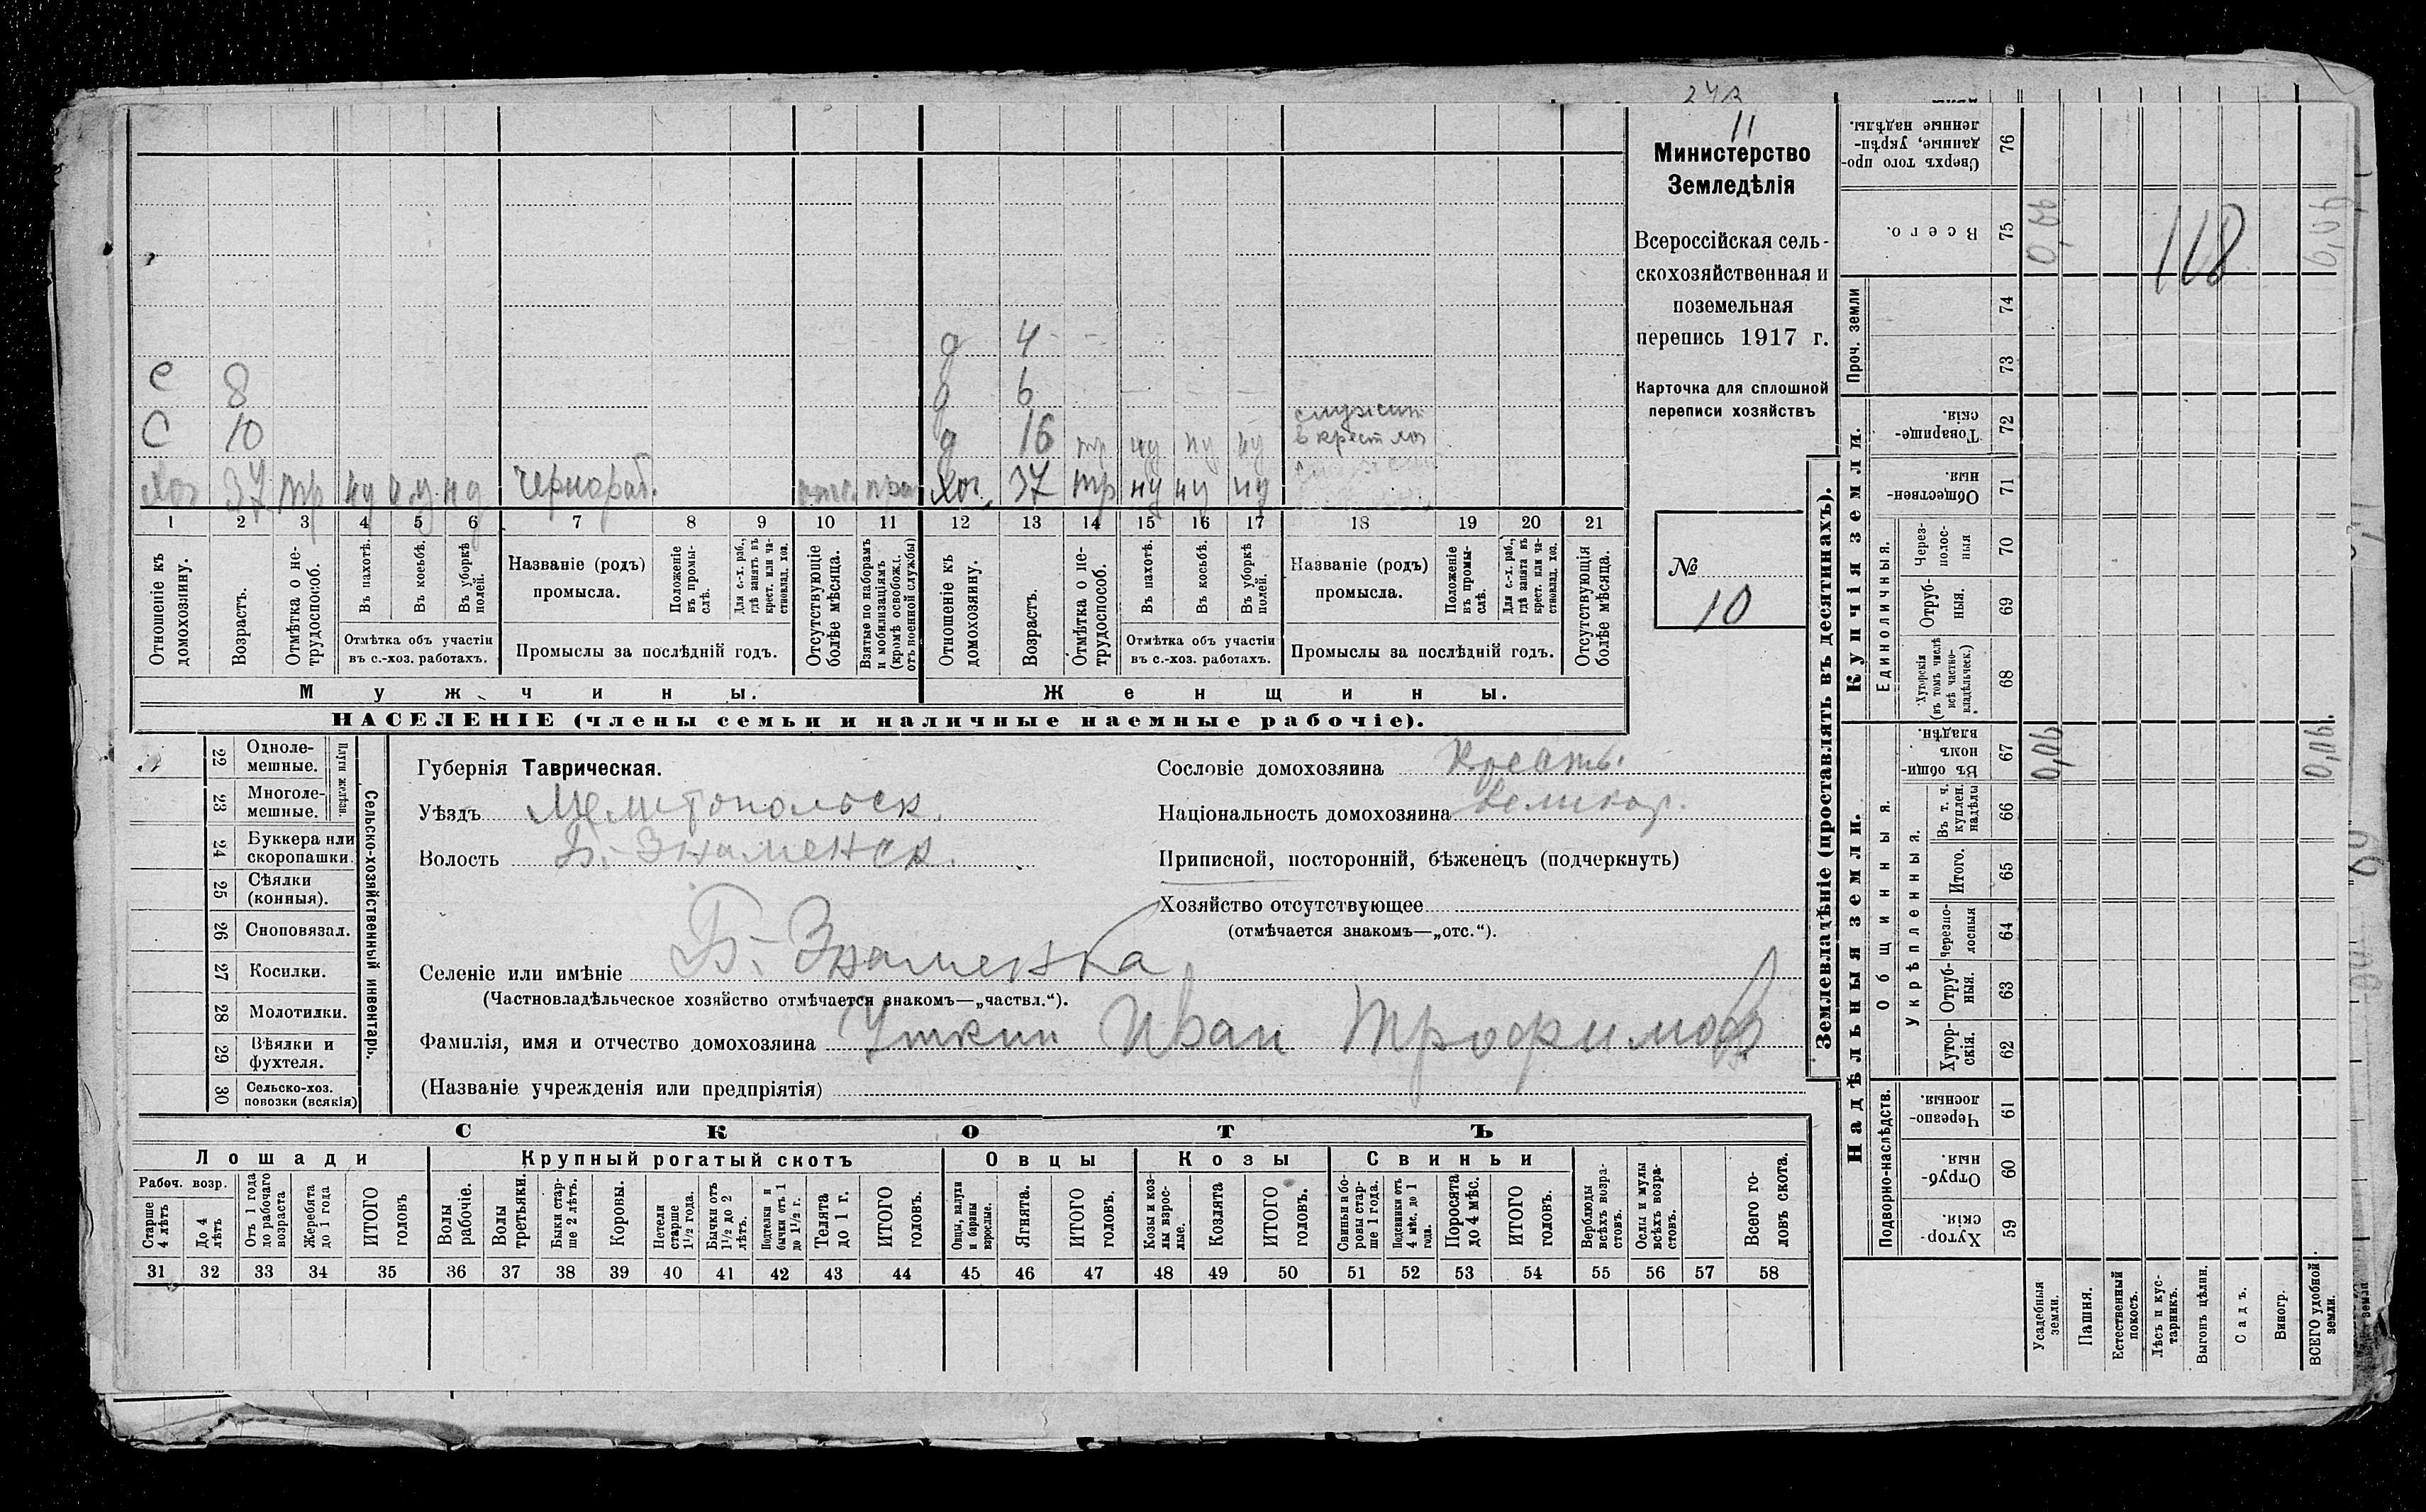 11
Министерство
Земледѣлія
Всероссійская сель-
скохозяйственная и
поземельная
перепись 1917 г.
Карточка для сплошной
переписи хозяйствъ
№
10
д 4
с 8 д 6
с 10 д 16 тр нд нд нд служит в крест хоз
хоз 37 тр нд нд нд чернораб. отс. хоз. 37 тр нд нд нд
1 2 3 4 5 6 7 8 9 10 11 12 13 14 15 16 17 18 19 20 21
Отношеніе къ домохозяину.
Возрастъ.
Отмѣтка о не-трудоспособ.
Въ пахотѣ.
Въ косьбѣ.
Въ уборкѣ полей.
Отмѣтка объ участіи
въ с.-хоз. работахъ.
Названіе (родъ)
промысла.
Положеніе въ промы-слѣ.
Для с.-х. раб., гдѣ занятъ въ крест. или ча-стновлад. хоз.
Промыслы за послѣдній годъ.
Отсутствующіе болѣе мѣсяца.
Взятые по наборамъ и мобилизаціямъ (кромѣ освобожд. отъ военной службы)
Отношеніе къ домохозяину.
Возрастъ.
Отмѣтка о не-трудоспособ.
Въ пахотѣ.
Въ косьбѣ.
Въ уборкѣ полей.
Отмѣтка объ участіи
въ с.-хоз. работахъ.
Названіе (родъ)
промысла.
Положеніе въ промы-слѣ.
Для с.-х. раб., гдѣ занята въ крест. или ча-стновлад. хоз.
Промыслы за послѣдній годъ.
Отсутствующія болѣе мѣсяца.
Мужчины. Женщины.
НАСЕЛЕНІЕ (члены семьи и наличные наемные рабочіе).
22 Одноле-мешные.
23 Многоле-мешные.
Плуги желѣзн.
24 Буккера или скоропашки.
25 Сѣялки (конныя).
26 Сноповязал.
27 Косилки.
28 Молотилки.
29 Вѣялки и фухтеля.
30 Сельско-хоз. повозки (всякія)
Сельско-хозяйственный инвентарь.
Губернія Таврическая.
Уѣздъ Мелитопольск.
Волость Б.-Знаменск.
Сословіе домохозяина Крестьян.
Національность домохозяина великор.
Приписной, посторонній, бѣженецъ (подчеркнуть)
Хозяйство отсутствующее
(отмѣчается знакомъ—„отс.“).
Селеніе или имѣніе Б.-Знаменка
(Частновладѣльческое хозяйство отмѣчается знакомъ—„частвл.“).
Фамилія, имя и отчество домохозяина Уткин Иван Трофимов
(Названіе учрежденія или предпріятія)
СКОТЪ
Лошади Крупный рогатый скотъ Овцы Козы Свиньи
Рабоч. возр.
Старше 4 лѣтъ
До 4 лѣтъ
Отъ 1 года до рабочаго возраста
Жеребята до 1 года
ИТОГО головъ
Волы рабочіе.
Волы третьяки.
Быки стар-ше 2 лѣтъ.
Коровы.
Нетели старше 1½ года.
Бычки отъ 1½ до 2 лѣтъ.
Подтелки и бычки отъ 1 до 1½ г.
Телята до 1 г.
ИТОГО головъ.
Овцы, валухи и бараны взрослые.
Ягнята.
ИТОГО головъ.
Козы и коз-лы взрос-лые.
Козлята
ИТОГО головъ.
Свиньи и бо-ровы стар-ше 1 года.
Подсвинки отъ 4 мѣс. до 1 года.
Поросята до 4 мѣс.
ИТОГО головъ.
Верблюды всѣхъ возра-стовъ.
Ослы и мулы всѣхъ возра-стовъ.
Всего го-ловъ скота.
31 32 33 34 35 36 37 38 39 40 41 42 43 44 45 46 47 48 49 50 51 52 53 54 55 56 57 58
Землевладѣніе (проставлять въ десятинахъ).
Надѣльныя земли. Купчія земли.
Подворно-наслѣдств.
Общинныя.
Укрѣпленныя.
Единоличныя.
Проч. земли
Хутор-скія. 59
Отруб-ныя. 60
Черезпо-лосныя. 61
Хутор-скія. 62
Отруб-ныя. 63
Черезпо-лосныя 64
Итого. 65
Въ т. ч. куплен. надѣлы 66
Въ общин-номъ владѣн. 67 0,06 0,06
Хуторскія (въ томъ числѣ всѣ частно-владѣльческ.) 68
Отруб-ныя. 69
Через-полос-ныя 70
Обществен-ныя. 71
Товарище-скія. 72
73
74
Всего. 75 0,06 118
Сверхъ того про-данные, укрѣп-ленные надѣлы. 76
Усадебныя земли.
Пашня.
Естественный покосъ.
Лѣсъ и кус-тарникъ.
Выгонъ цѣлин.
Садъ.
Виногр.
ВСЕГО удобной земли.